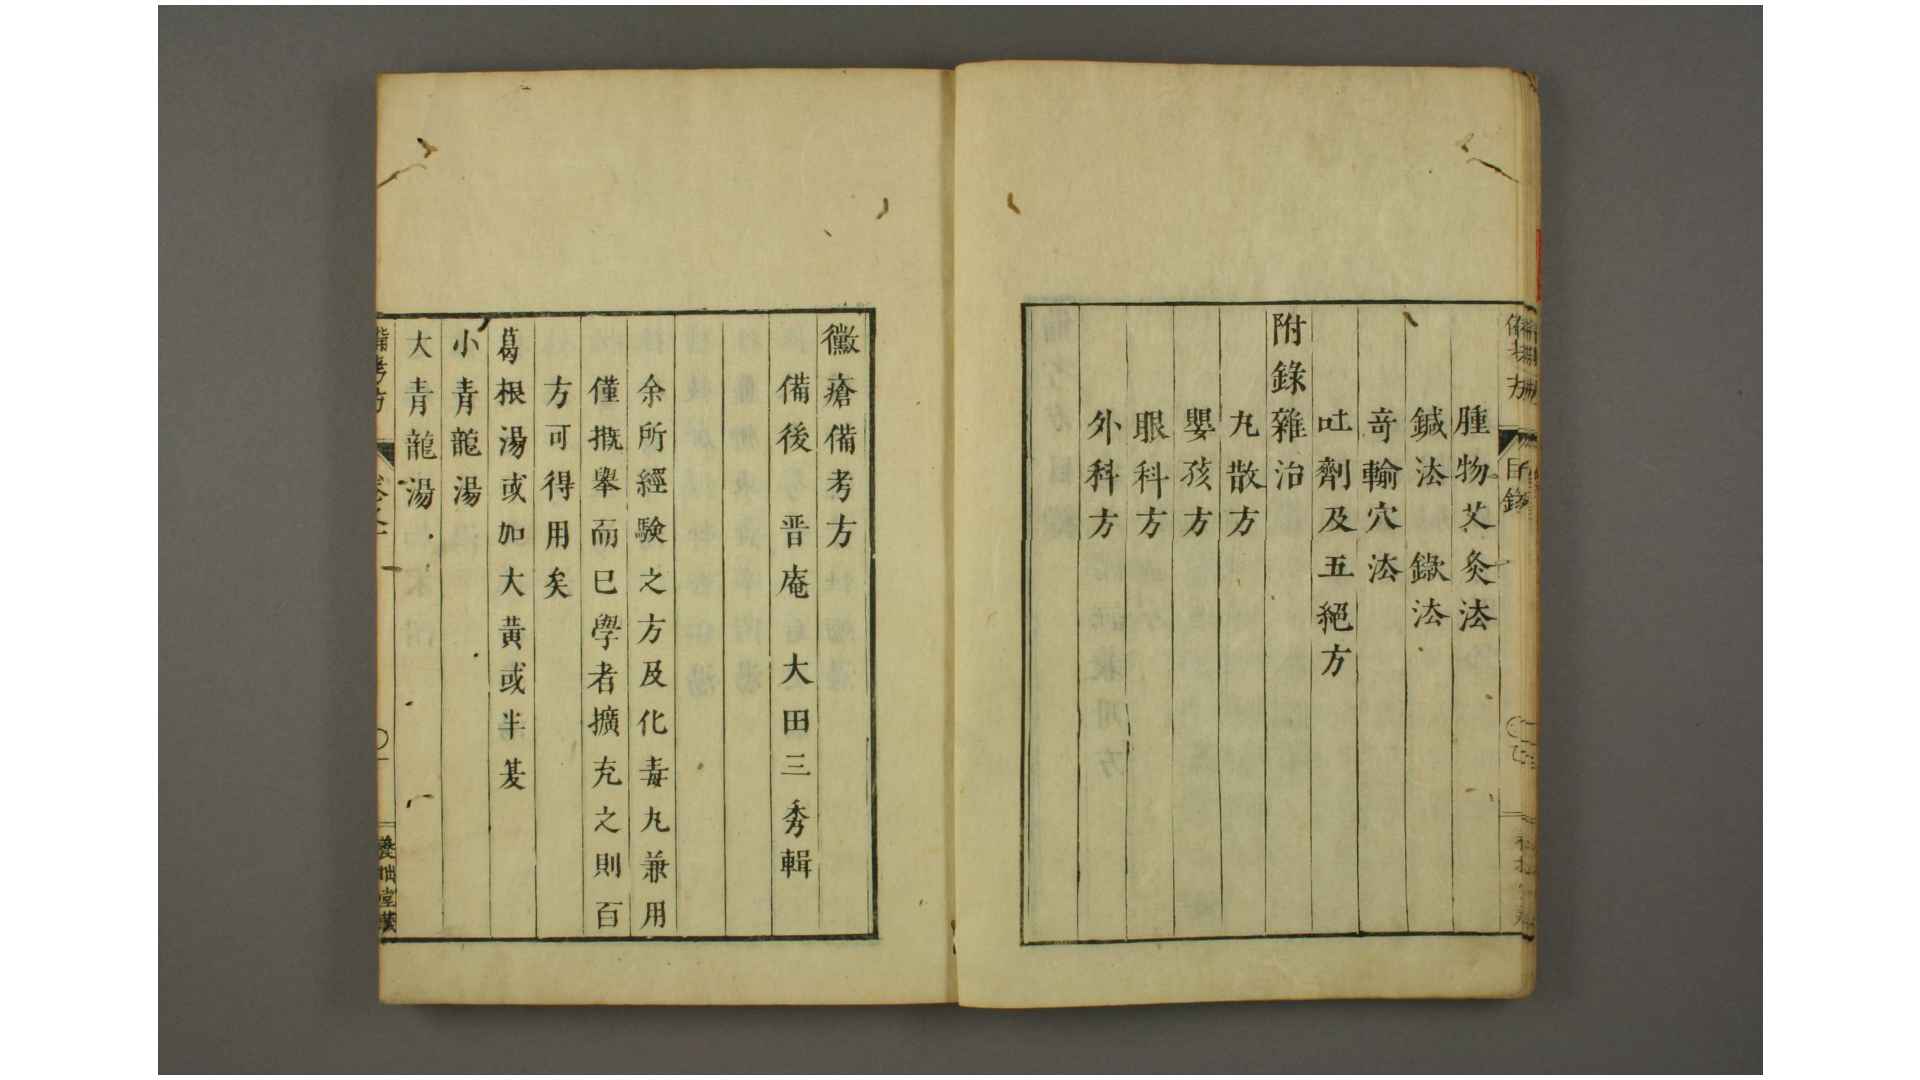 腫物艾灸法
鍼法　鍁法
竒輸穴法
吐劑及五絕方
附錄雜治
丸散方
嬰孩方
眼科方
外科方
目錄
黴瘡備考方
備後　晋庵　大田三秀輯
余所經驗之方及化毒丸兼用
僅摡舉而已學者擴充之則百
方可得用矣
葛根湯或加大黄或半夏
小青龍湯
大青龍湯
備考方
養拙堂藏